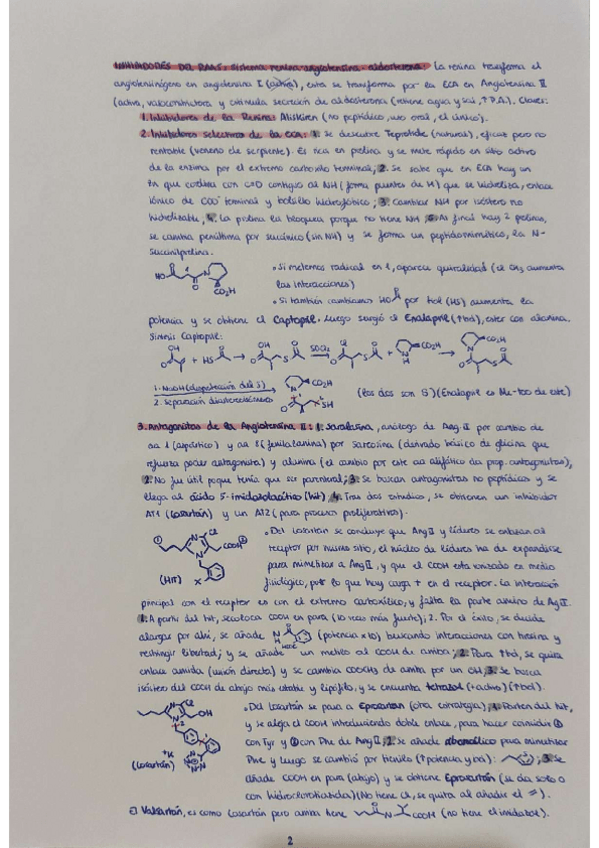 INHIBIDORES DEL RAAS: sistema renina-angiotensina-aldosterona: La renina transforma el
angiotensinógeno en angiotensina I (activa), esta se transforma por la ECA en Angiotensina II
(activa, vasoconstrictora y estimula secreción de aldosterona (retiene agua y sal, ↑P.A.). Clases:
1. Inhibidores de la Renina: Aliskiren (no peptídico, uso oral, el único).
2. Inhibidores selectivos de la ECA: 1. Se descubre Teprotide (natural), eficaz pero no
rentable (veneno de serpiente). Es rica en prolina y se mete rápido en sitio activo
de la enzima por el extremo carboxilo terminal; 2. Se sabe que en ECA hay un
Zn que coordina con C=O contiguo al NH (forma puentes de H) que se hidroliza, enlace
iónico de COO⁻ terminal y bolsillo hidrofóbico; 3. Cambiar NH por isóstero no
hidrolizable, 4. La prolina la bloquea porque no tiene NH 5. Al final hay 2 prolinas,
se cambia penúltima por succínico (sin NH) y se forma un peptidomimético, la N-
Succinilprolina.
• Si metemos radical en 1, aparece quiralidad (el CH₃ aumenta
las interacciones)
• Si también cambiamos HO por tiol (HS) aumenta la
potencia y se obtiene el Captopril. Luego surgió el Enalapril (↑bd), ester con alanina.
Síntesis Captopril:
OH + HS → SOCl₂ → Cl + N H CO₂H → N CO₂H
1. NaOH (desprotección del S)
2. Separación diastereoisómeros
CO₂H SH (Los dos son S) (Enalapril es Me-too de este)
3. Antagonistas de la Angiotensina II: 1. Saralasina, análogo de Ang II por cambio de
aa 1 (aspártico) y aa 8 (fenilalanina) por sarcosina (derivado básico de glicina que
refuerza poder antagonista) y alanina (el cambio por este aa alifático da prop. antagonistas),
2. No fue útil porque tenía que ser parenteral; 3. Se buscan antagonistas no peptídicos y se
llega al ácido 5-imidazolacético (hit), 4. Tras dos estudios, se obtienen un inhibidor
AT1 (Losartán) y un AT2 (para procesos proliferativos).
① N Cl COOH ② N X (HIT)
• Del Losartán se concluye que Ang II y líderes se enlazan al
receptor por mismo sitio, el núcleo de líderes ha de expandirse
para mimetizar a Ang II, y que el COOH esta ionizado es medio
fisiológico, por lo que hay carga + en el receptor. La interacción
principal con el receptor es con el extremo carboxílico, y falta la parte amino de Ag II.
1. A partir del hit, se coloca COOH en para (10 veces más fuerte); 2. Por el éxito, se decide
alargar por ahí, se añade N H HOOC (potencia x10) buscando interacciones con tirosina y
restringir libertad; y se añade un metilo al COOH de arriba; 2. Para ↑bd, se quita
enlace amida (unión directa) y se cambia COOCH₃ de arriba por un OH, 3. Se busca
isóstero del COOH de abajo más estable y lipófilo, y se encuentra tetrazol (+activo) (↑bd).
N Cl OH ⁺K N (Losartán)
• Del Losartán se pasa a Eprosartán (otra estrategia), 1. Parten del hit,
y se aleja el COOH introduciendo doble enlace, para hacer coincidir ②
con Tyr y ① con Phe de Ang II; 2. Se añade para mimetizar
Phe y luego se cambió por tienilo (↑potencia y bd): S; 3. Se
añade COOH en para (abajo) y se obtiene Eprosartán (se da solo o
con hidroclorotiazida) (No tiene Cl, se quita al añadir el =).
El Valsartán, es como Losartán pero arriba tiene O N COOH (no tiene el imidazol).
2